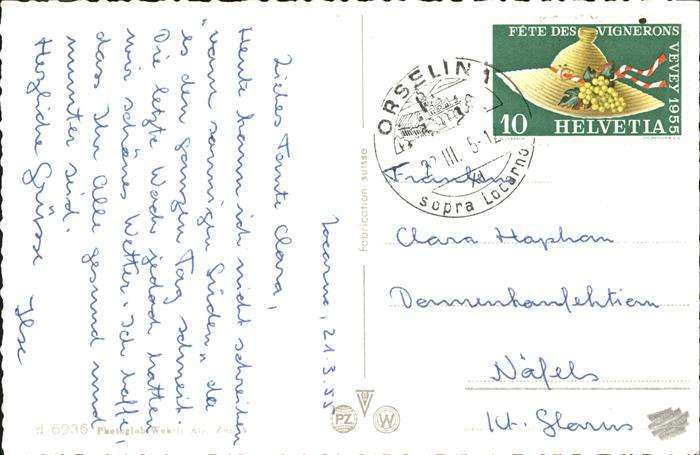 Locarno, 21.3.55
Liebes Tante Clara,
Heute kann ich nicht schreiben
"vom sonnigen Süden" da
es den ganzen Tag schneit.
Die letzte Woche jedoch hatten
wir schönes Wetter. Ich hoffe,
dass Ihr alle gesund und
munter seid.
Herzliche Grüsse Ilse
FÊTE DES VIGNERONS
VEVEY 1955
10 HELVETIA
ORSELINA
sopra Locarno
Fabrication suisse
Clara Haphan
Damenkonfektion
Näfels
Kt. Glarus
6936 Photoglob
PZ
W